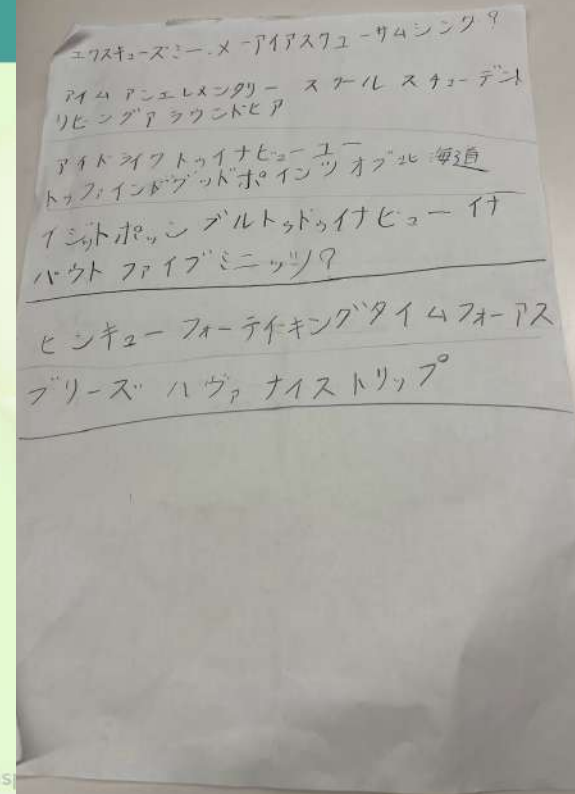 エクスキューズミー.メーアイアスクユーサムシング?
アイム アンエレメンタリー スクール スチューデント
リビングアラウンドヒア
アイドライクトゥイナビューユー
トゥファインドグッドポインツオブ北海道
イジットポッシブルトゥドゥイナビューイナ
バウトファイブミニッツ?
センキューフォーテイキングタイムフォーアス
プリーズ ハヴァ ナイストリップ